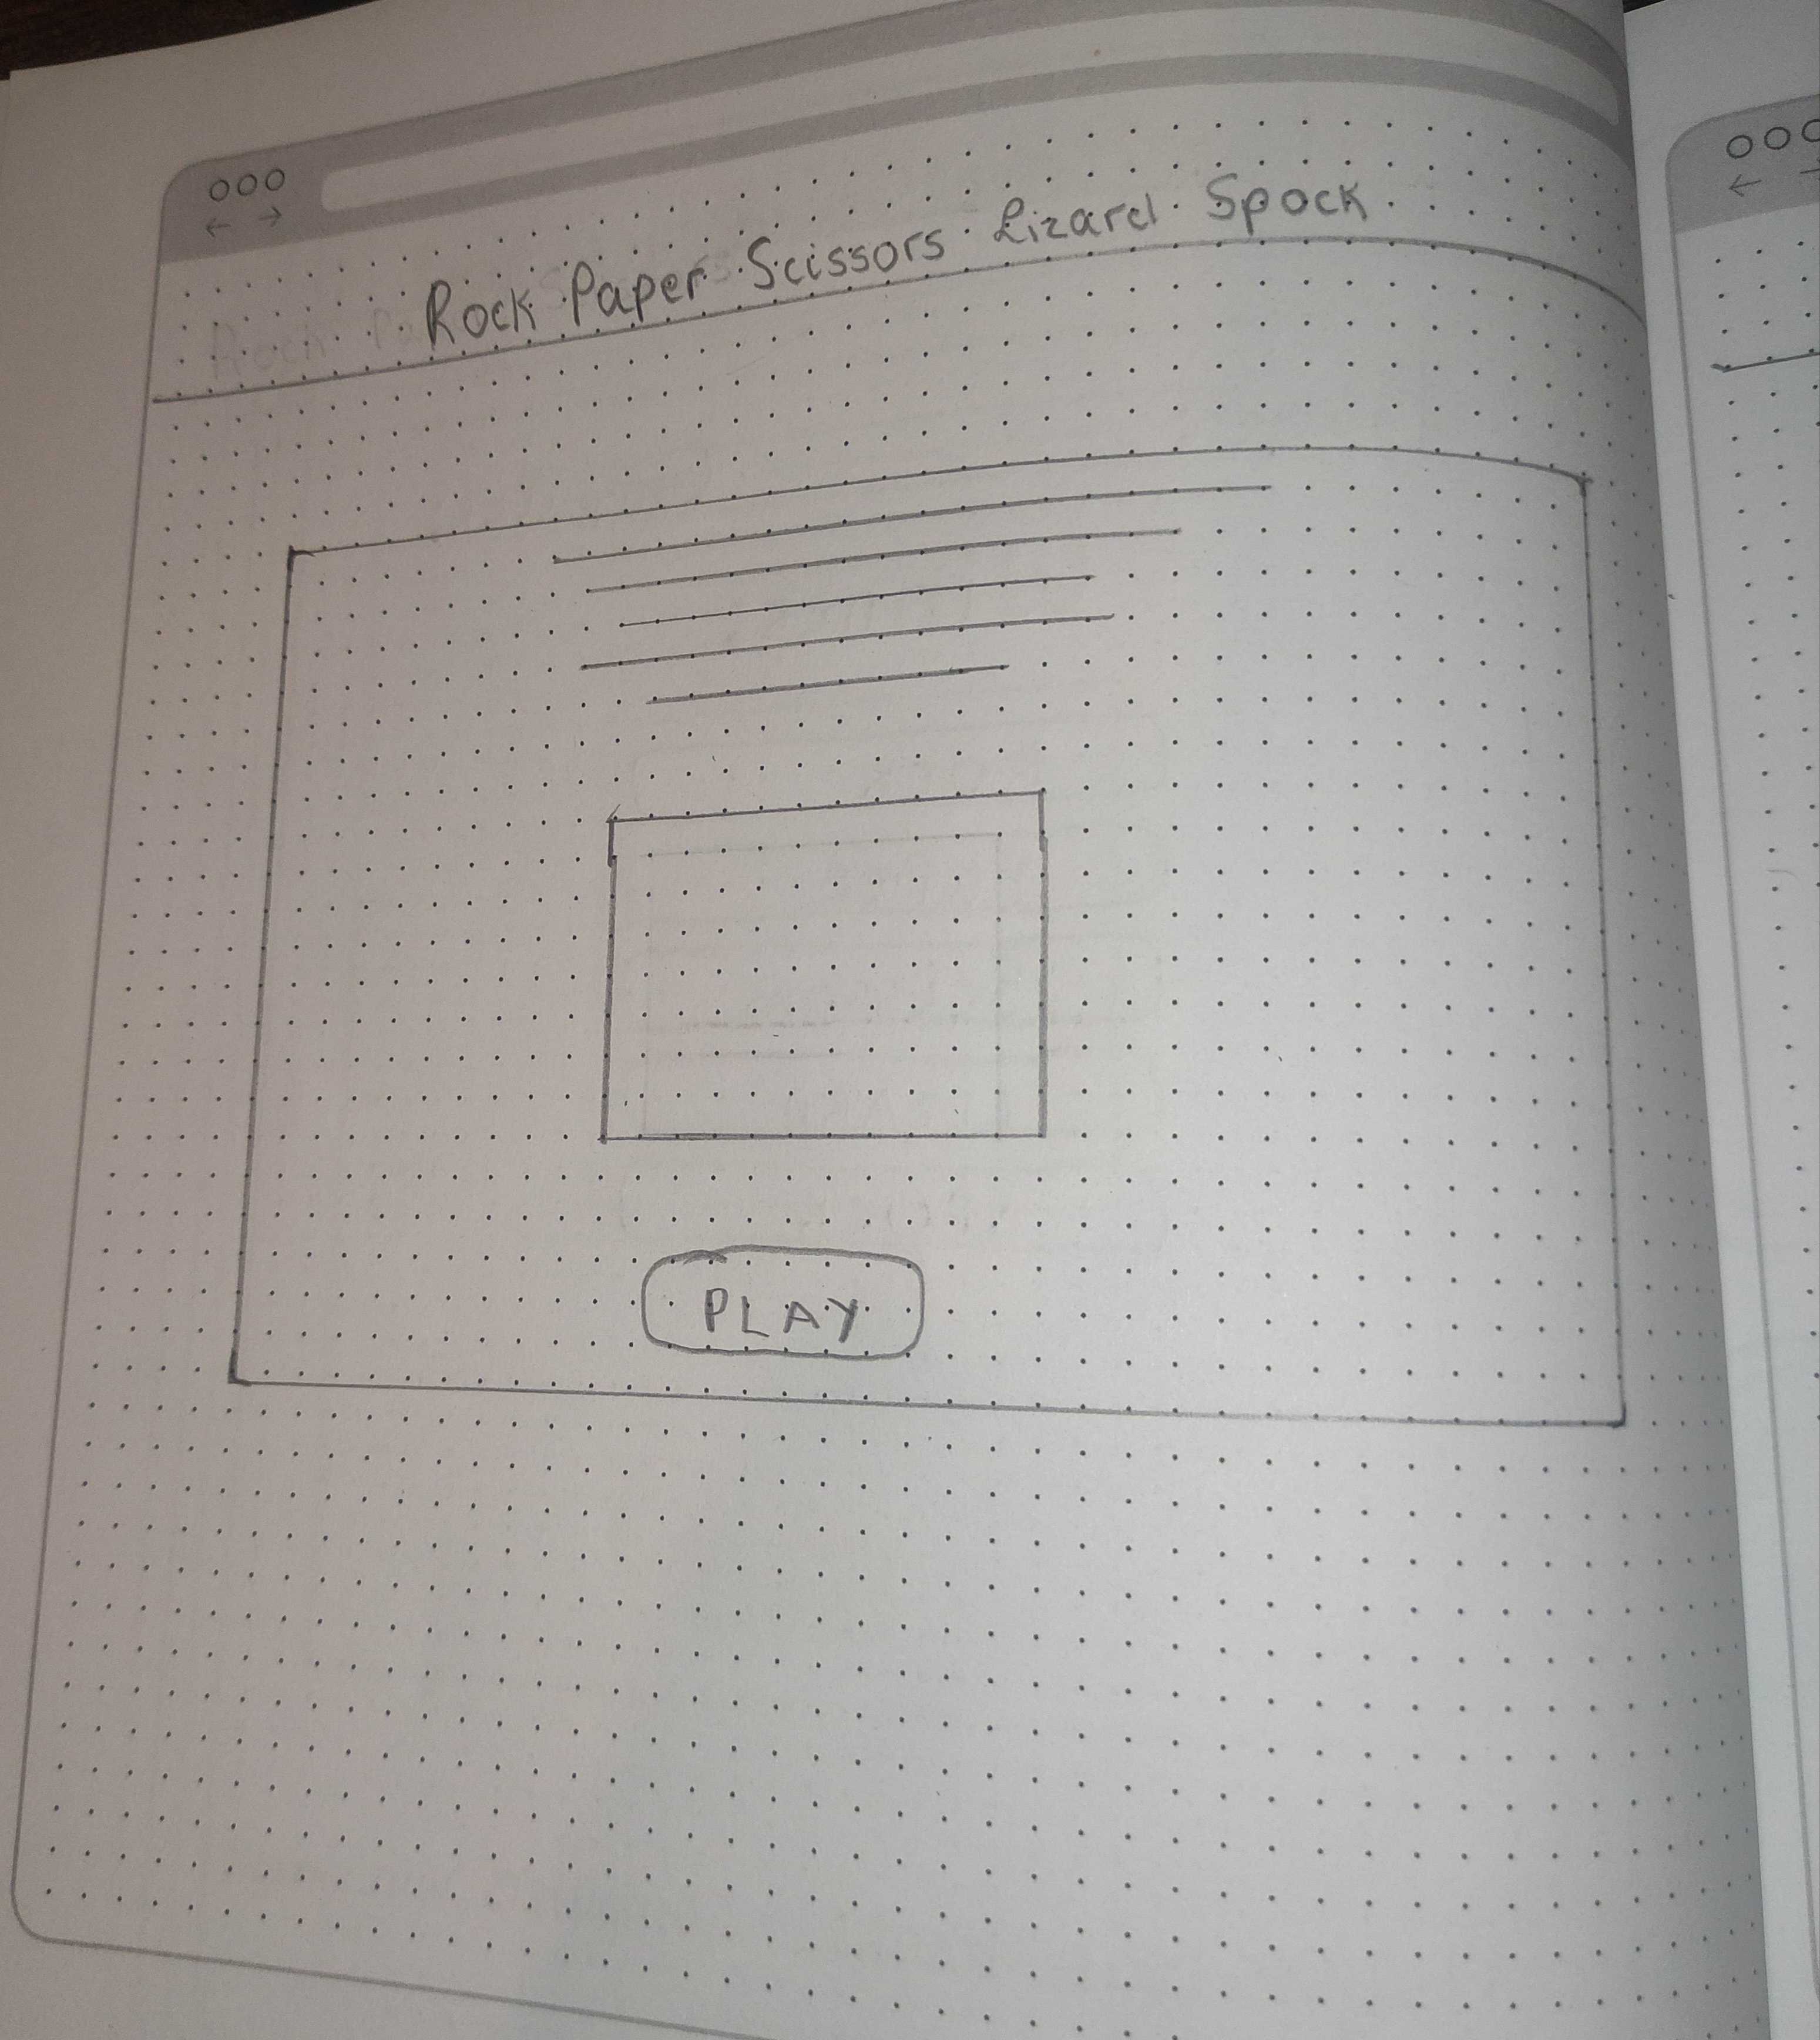 Rock Paper Scissors Lizard Spock
PLAY